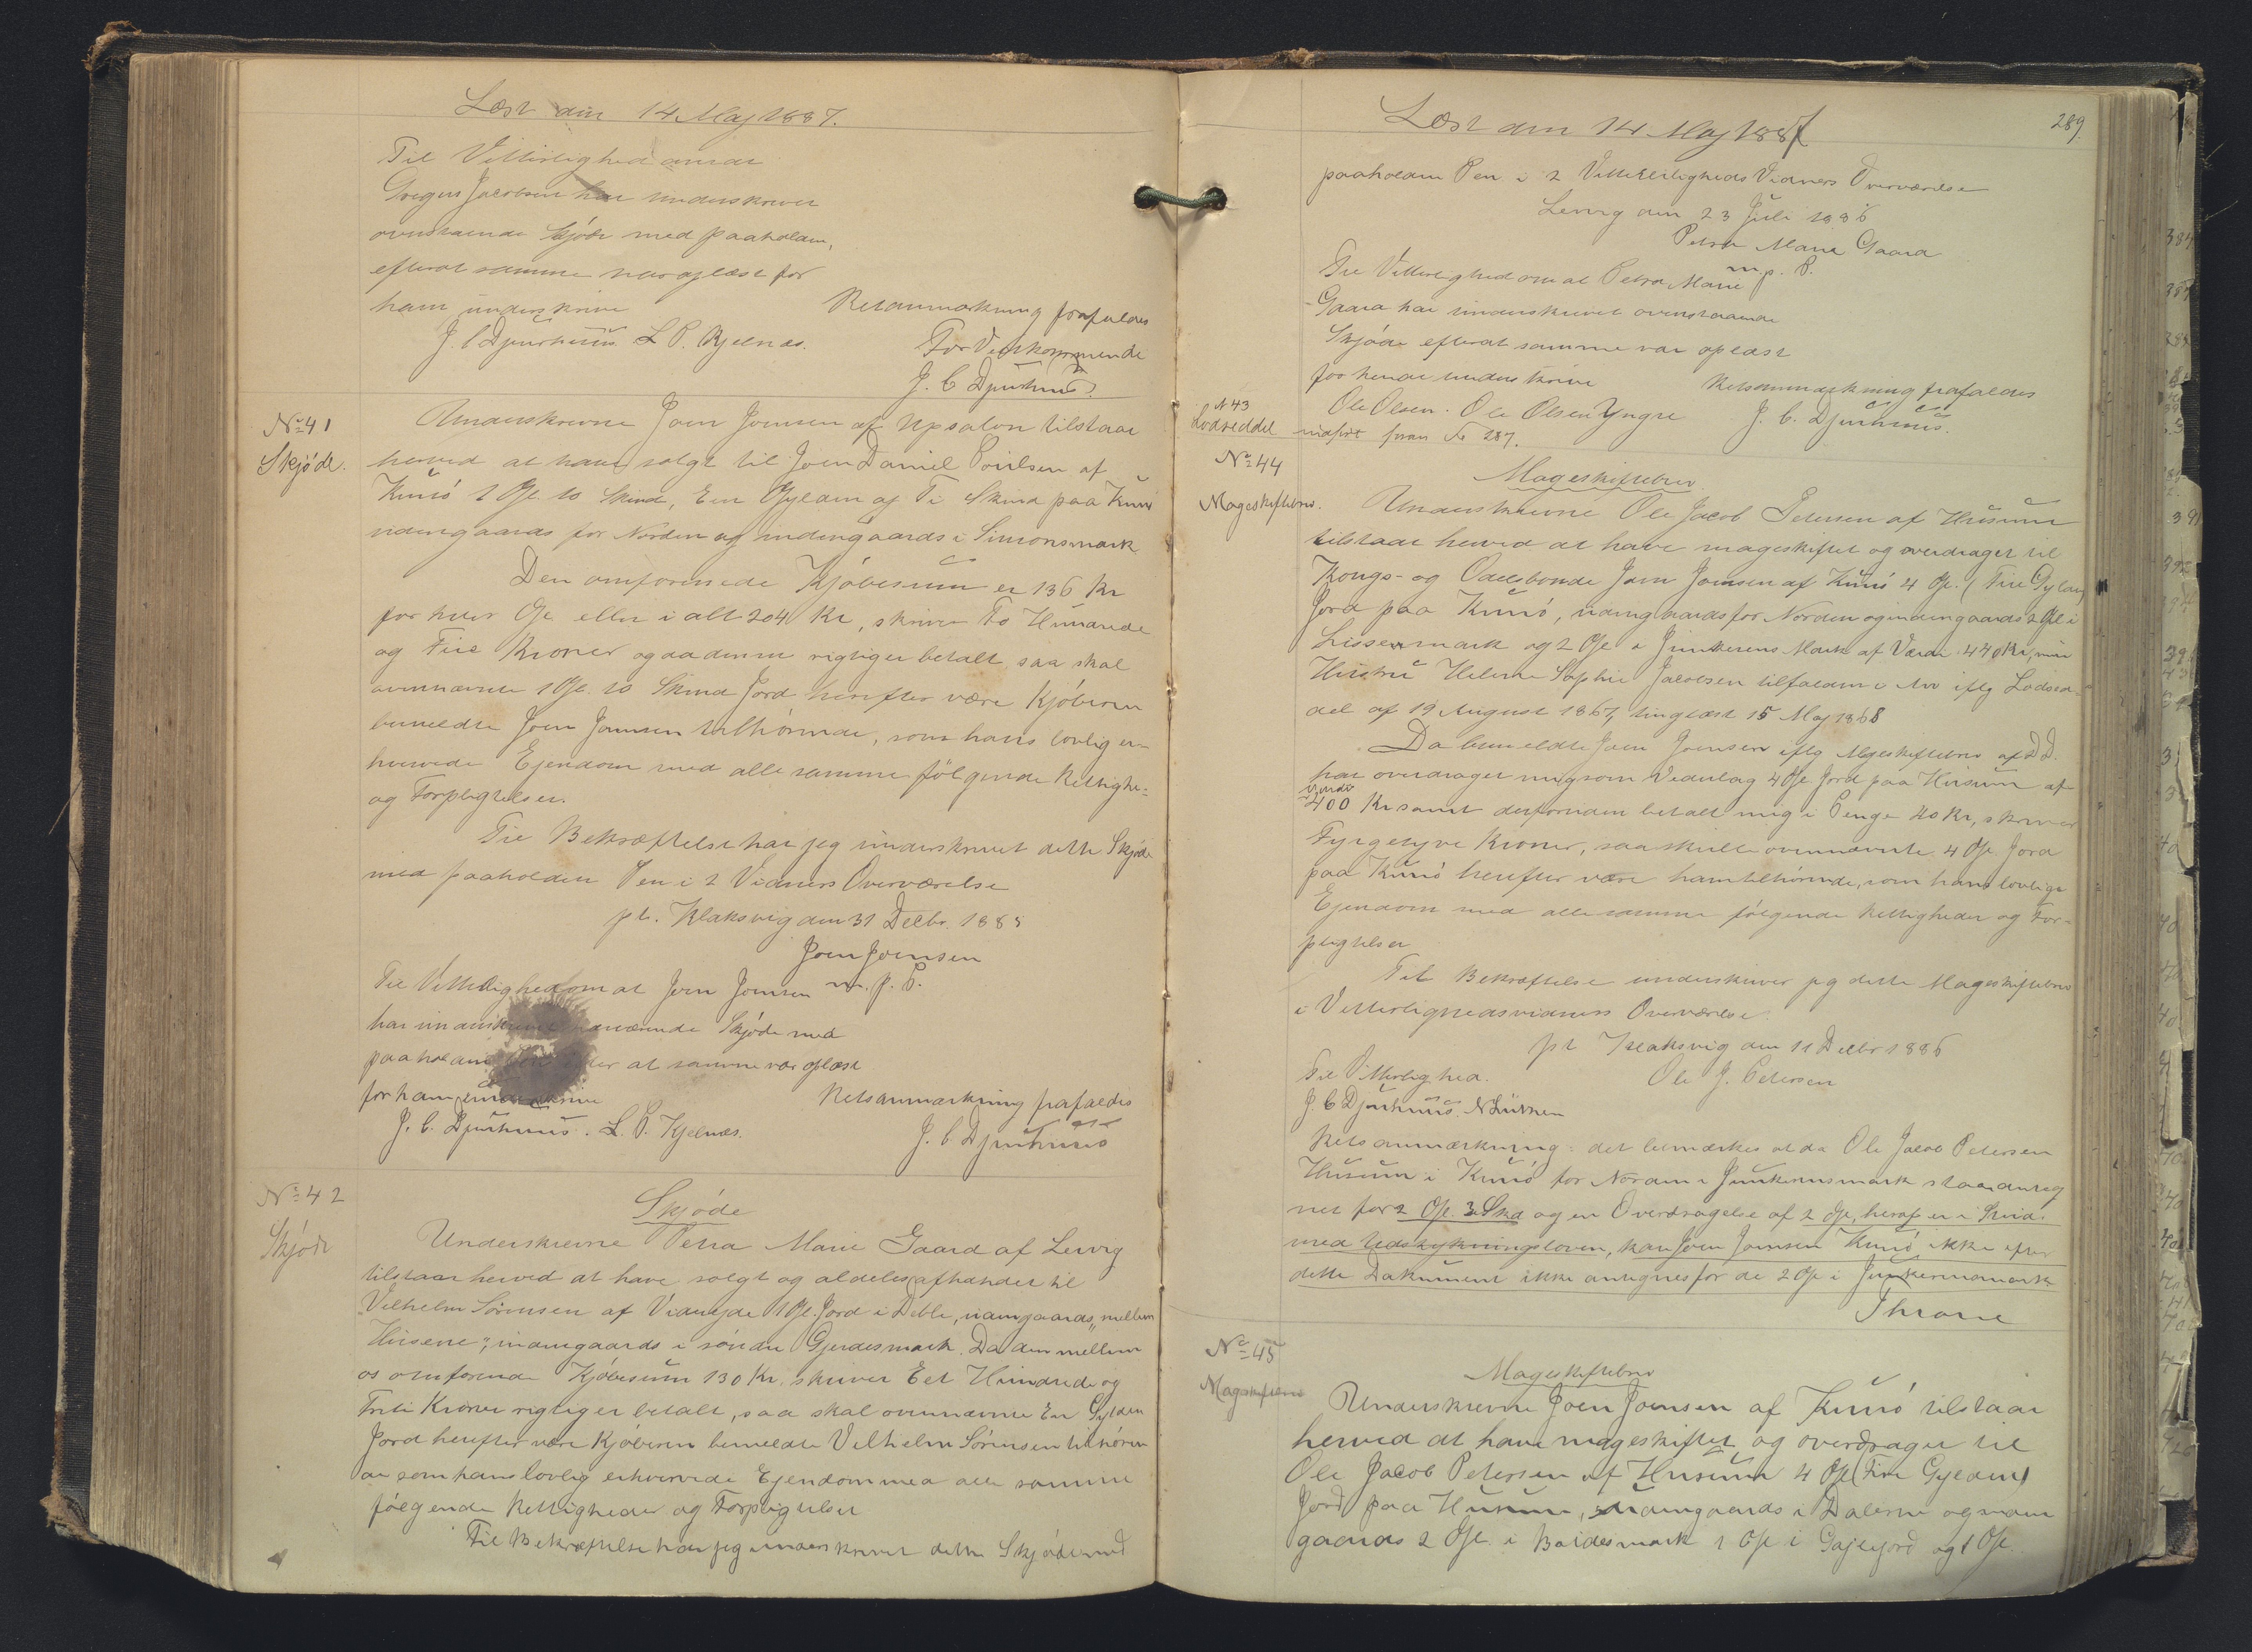 Læst den 14 Maj 1887.
Til Vitterlighed om at
Gregers Jacobsen har underskrevet
ovenstaaende Skjöde med paaholden,
efterat samme var oplæst for
ham underskrive
Retanmærkning frafaldes
J. C Djurhuus L P. Kjelnæs.
For Vedkommende
J. C Djurhuus
No 41
Skjöde.
Underskrevne Joen Joensen af Upsalon tilstaar
herved at have solgt til Joen Daniel Poulsen af
Kunö 1 Gl. 10 Skind, Een Gylden og Ti Skind paa Kunö
udengaards for Norden og indengaards i Simonsmark
Den omforenede Kjöbesum er 136 Kr
for hver Gl. eller i alt 204 Kr, skriver To Hundrede
og Fire Kroner og da denne rigtig er betalt saa skal
ovennævnte 1 Gl. 10 Skind Jord herefter være Kjöberen
bemeldte Joen Joensen tilhörende, som hans lovlig er-
hvervede Ejendom med alle samme fölgende Rettighe-
og Forpligtelser.
Til Bekræftelse har jeg underskrevet dette Skjöde
med paaholden Pen i 2 Vidners Overværelse
pt. Klaksvig den 31 Decbr. 1885
Joen Joensen
m. p. P.
Til Vitterlighed om at Joen Joensen
har underskrevet nærværende Skjöde med
paaholden Pen efter at samme var oplæst
for ham underskrive
Retsanmærkning frafaldes
J. C. Djurhuus. L. P. Kjelnæs.
J. C. Djurhuus
No 42
Skjöde
Skjøde
Underskrevne Petra Marie Gaard af Lervig
tilstaar herved at have solgt og aldeles afhændet til
Vilhelm Sörensen af Videnejde 1 Gl. Jord i Deble, udengaards „mellem
Husene“, indengaards i söndre Gjerdesmark. Da den mellem
os omforende Kjöbesum 130 Kr. skriver Eet Hundrede og
Treti Kroner rigtig er betalt, saa skal ovennævnte En Gylden
Jord herefter være Kjöberen bemeldte Vilhelm Sörensen tilhören
de som hans lovlig erhvervede Ejendom med alle samme
fölgende Rettigheder og Forpligtelser
Til Bekræftelse har jeg underskrevet dette Skjöde med
Læst den 14 Maj 1887
289.
paaholden Pen i 2 Vitterligheds Vidners Overværelse
Lervig den 23 Juli 1886
Petra Marie Gaard
m. p. P.
Til Vitterlighed om at Petra Marie
Gaard har underskrevet ovenstaaende
Skjöde efterat samme var oplæst
for hende underskrive
Retsanmærkning frafaldes
Ole Olsen. Ole Olsen Yngre J. C. Djurhuus.
N 43
Lodseddel indfört foran Fo 287.
No 44
Mageskiftebrev.
Mageskiftebrev.
Underskrevne Ole Jacob Petersen af Husum
tilstaar herved at have mageskiftet og overdraget til
Kongs- og Odelsbonde Joen Joensen af Kunö 4 Gl. (Fire Gylden)
Jord paa Kunö, udengaards for Norden og indengaards 2 Gl i
Lissermark og 2 Gl i Junkerens Mark af Værdi 440 Kr, min
Hustru Helene Sophie Jacobsen tilfalden i Arv iflg Lodsed-
del af 19 August 1867, tinglæst 15 Maj 1868
Da bemeldte Joen Joensen iflg Mgeskiftebrev af D.D.
har overdraget mig som Vederlag 4 Gl Jord paa Husum af
Værdi
400 Kr samt desforuden betalt mig i Penge 40 Kr, skriver
Fyrgetyve Kroner, saa skulle ovennævnte 4 Gl. Jord
paa Kunö herefter være ham tilhörende, som hans lovlige
Ejendom med alle samme fölgende Rettigheder og For-
pligtelser
Til Bekræftelse underskriver jeg dette Mageskiftebrev
i Vetterlighedsvidners Overværelse.
pt Klaksvig den 11 Decbr 1886
Til Vitterlighed.
Ole J. Petersen
J. C Djurhuus.
Retsanmærkning: det bemærkes at da Ole Jacob Petersen
Husum i Kunö for Norden i Junkerensmark staar anteg
net for 2 Gl. 3 Skd og en Overdragelse af 2 Gl, heraf er i Strid
med Udstykningsloven, kan Joen Joensen Kunö ikke efter
dette Dokument ikke antegnes for de 2 Gl i Junkerensmark
Throne
No 45
Mageskiftebrev
Mageskiftebrev
Underskrevne Joen Joensen af Kunö tilstaar
herved at have mageskiftet og overdraget til
Ole Jacob Petersen af Husum 4 Gl (Fire Gylden)
Jord paa Husum, udengaards i Dalerne og inden
gaards 2 Gl. i Boidesmark 1 Gl i Gajlegjord og 1 Gl.